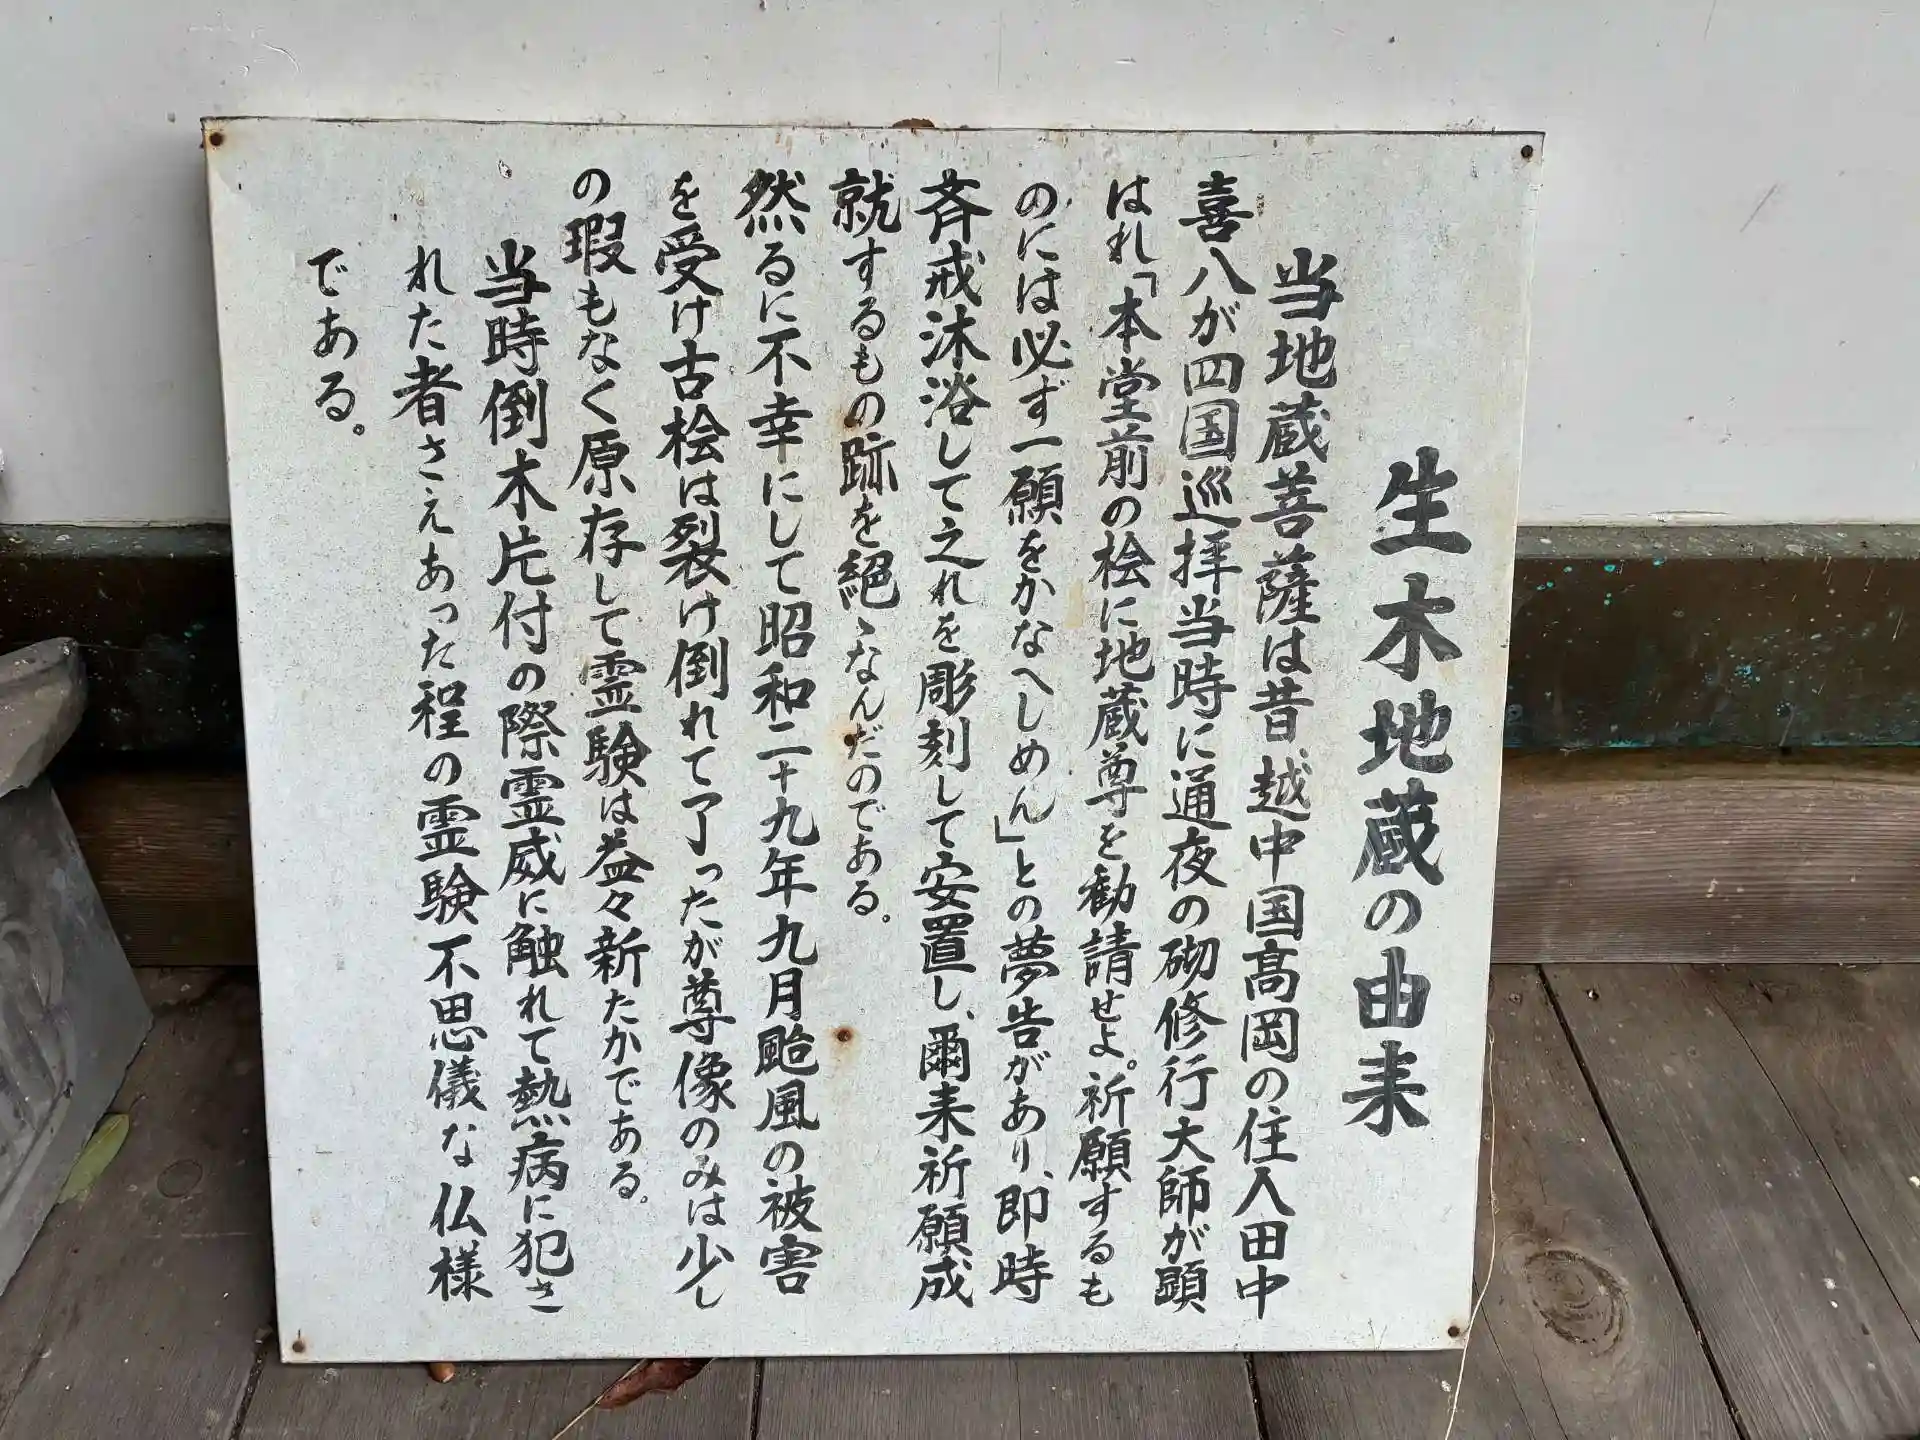 生木地蔵の由来
当地蔵菩薩は昔、越中国高岡の住入田中
喜八が四国巡拝当時に通夜の砌修行大師が顕
はれ「本堂前の桧に地蔵尊を勧請せよ。祈願するも
のには必ず一願をかなへしめん」との夢告があり、即時
斉戒沐浴して之れを彫刻して安置し、爾来祈願成
就するもの跡を絶゛なんだのである。
然るに不幸にして昭和二十九年九月颱風の被害
を受け古桧は裂け倒れて了ったが尊像のみは少し
の瑕もなく原存して霊験は益々新たかである。
当時倒木片付の際霊威に触れて熱病に犯さ
れた者さえあった程の霊験不思儀な仏様
である。